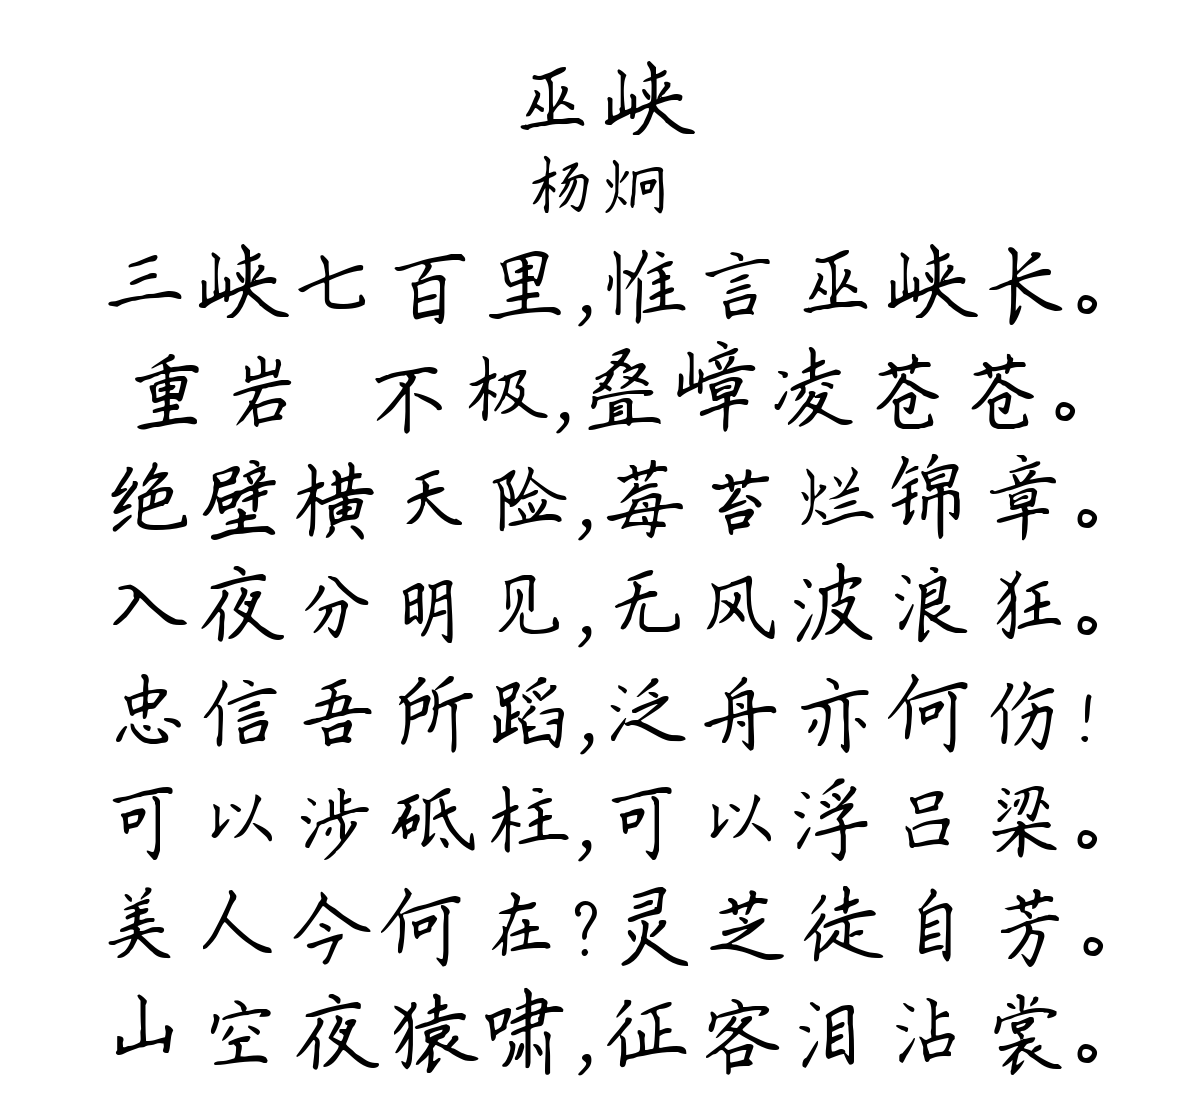 巫峡
杨炯
三峡七百里,惟言巫峡长。
重岩 不极,叠嶂凌苍苍。
绝壁横天险,莓苔烂锦章。
入夜分明见,无风波浪狂。
忠信吾所蹈,泛舟亦何伤!
可以涉砥柱,可以浮吕梁。
美人今何在?灵芝徒自芳。
山空夜猿啸,征客泪沾裳。